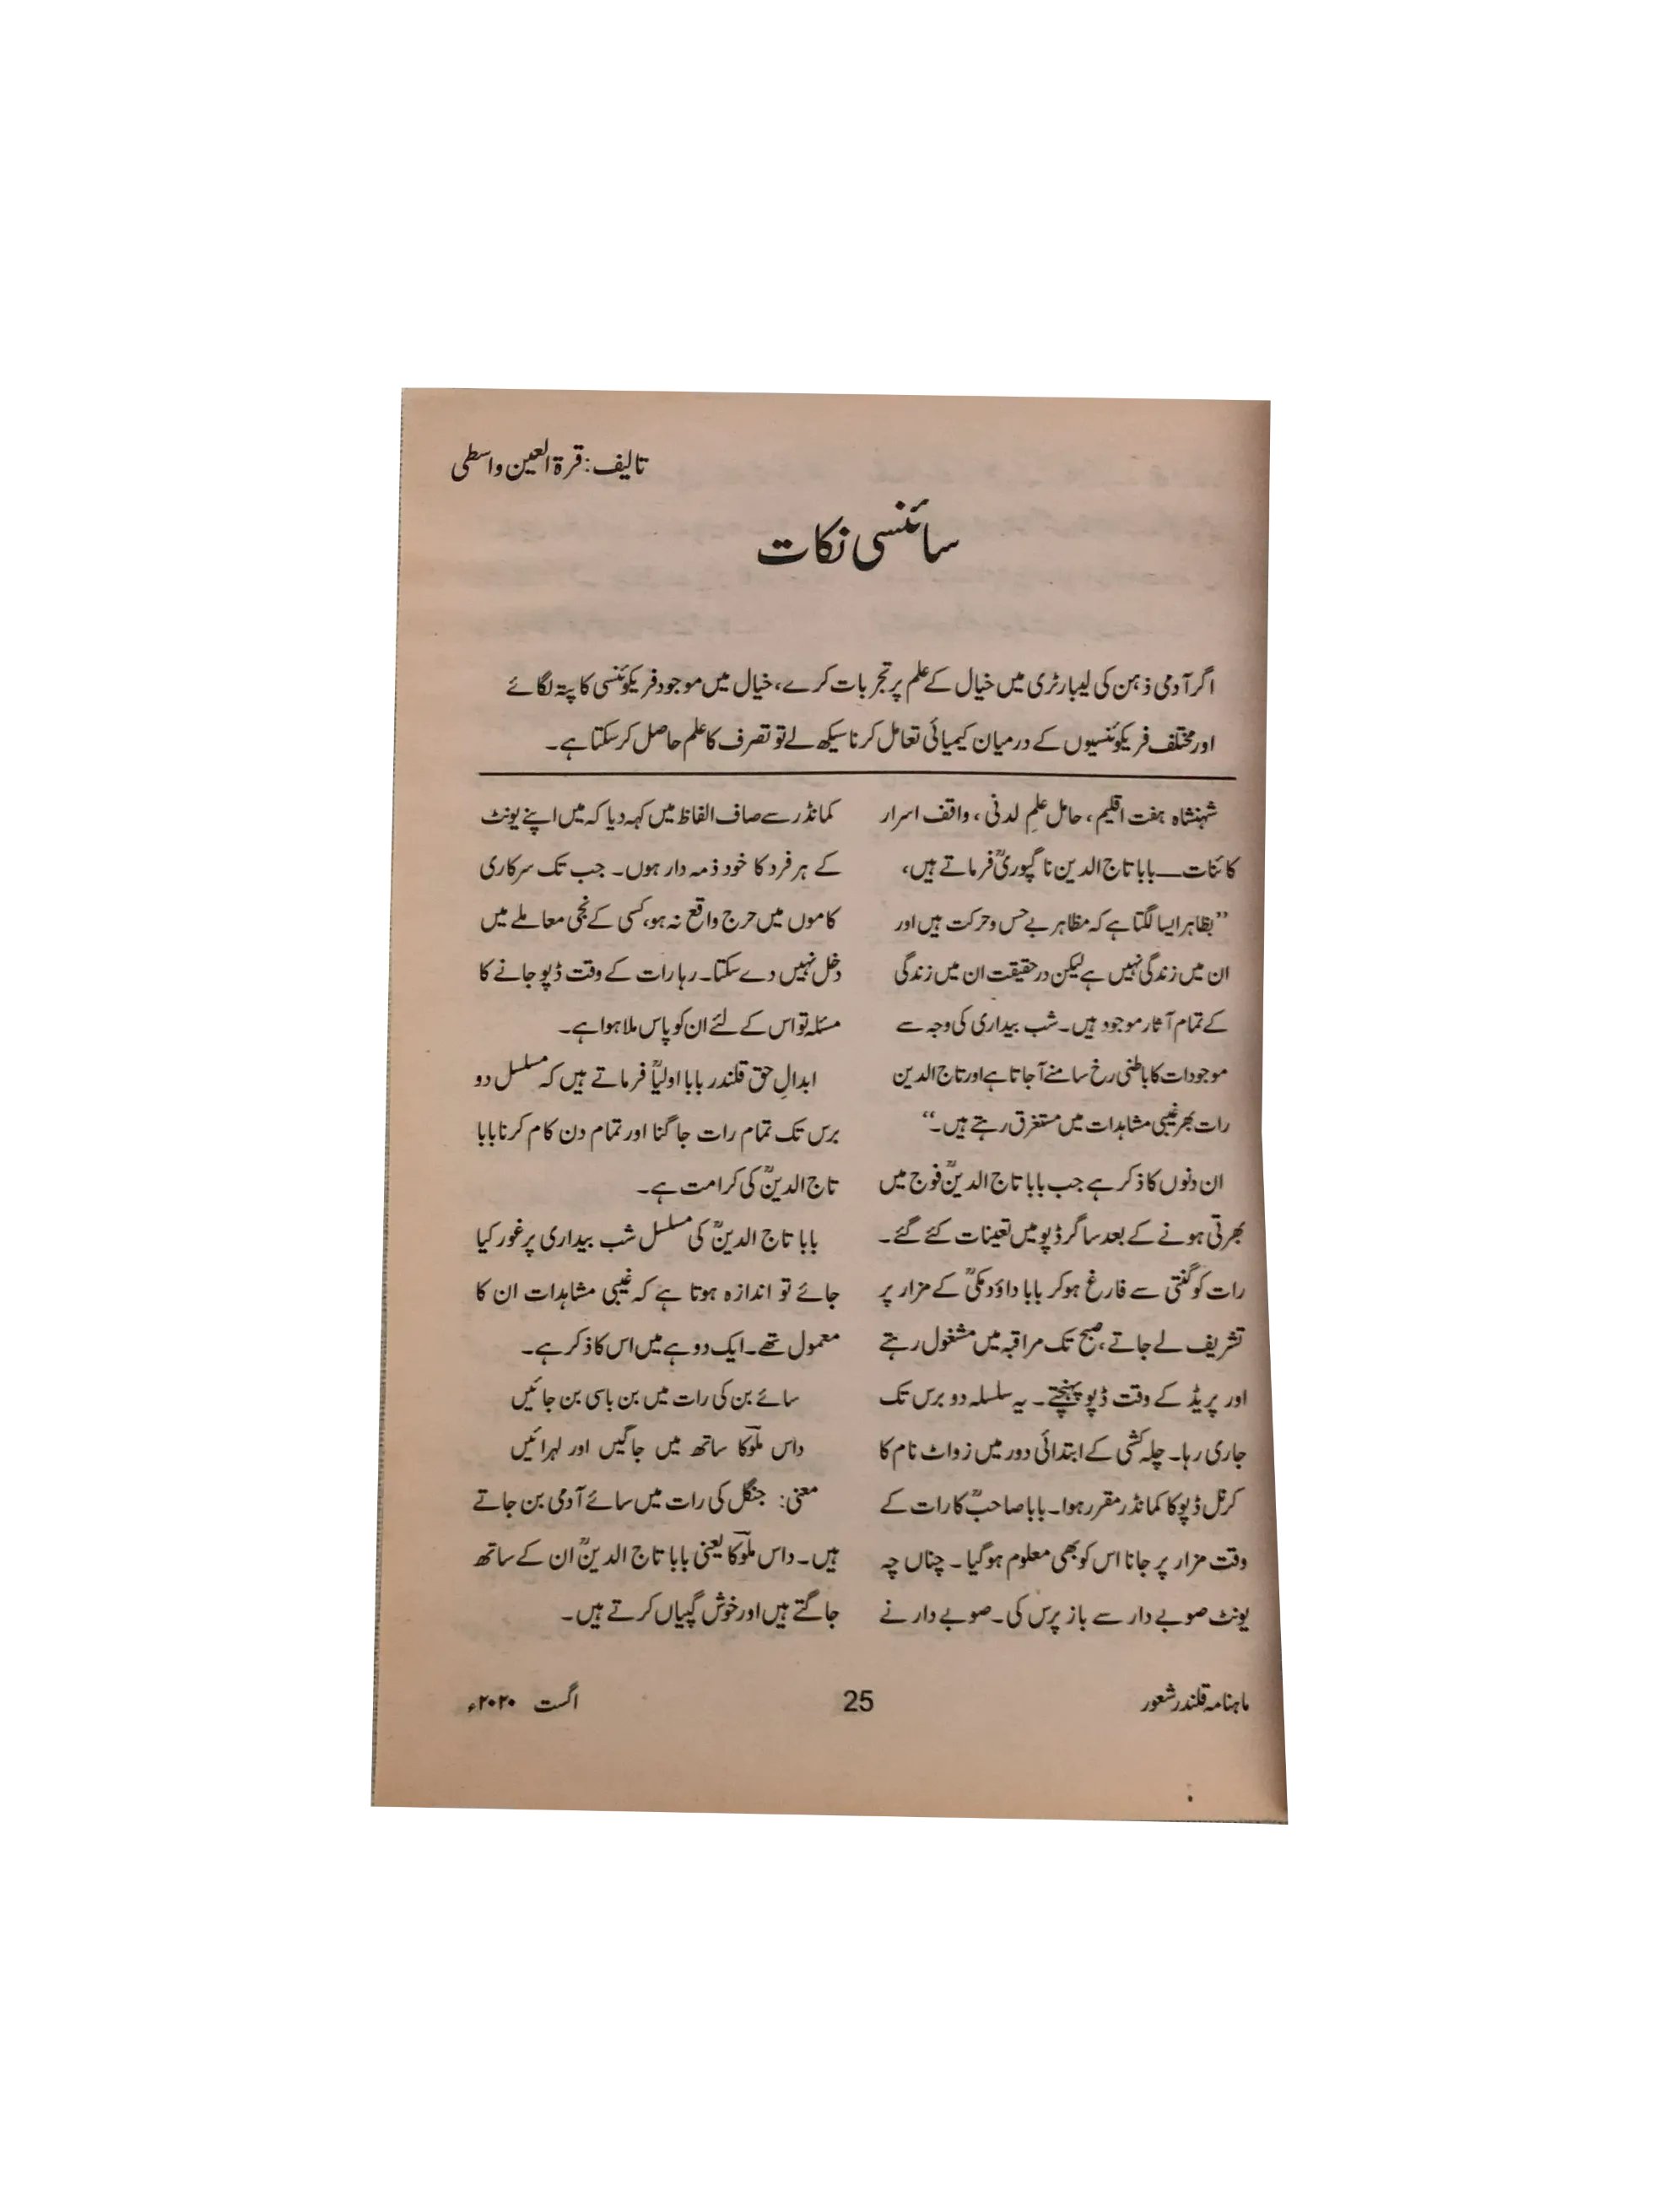 تالیف: قرۃ العین واسطی
سائنسی نکات
اگر آدمی ذہن کی لیبارٹری میں خیال کے علم پر تجربات کرے، خیال میں موجود فریکوئنسی کا پتہ لگائے
اور مختلف فریکوئنسیوں کے درمیان کیمیائی تعامل کرنا سیکھ لے تو تصرف کا علم حاصل کر سکتا ہے۔
شہنشاہ ہفت اقلیم، حامل علمِ لدنی، واقف اسرار
کائنات — بابا تاج الدین ناگپوریؒ فرماتے ہیں،
”بظاہر ایسا لگتا ہے کہ مظاہر بے حس و حرکت ہیں اور
ان میں زندگی نہیں ہے لیکن درحقیقت ان میں زندگی
کے تمام آثار موجود ہیں۔ شب بیداری کی وجہ سے
موجودات کا باطنی رخ سامنے آ جاتا ہے اور تاج الدین
رات بھر غیبی مشاہدات میں مستغرق رہتے ہیں۔“
ان دنوں کا ذکر ہے جب بابا تاج الدینؒ فوج میں
بھرتی ہونے کے بعد ساگر ڈپو میں تعینات کئے گئے۔
رات کو گنتی سے فارغ ہو کر بابا داؤد مکیؒ کے مزار پر
تشریف لے جاتے، صبح تک مراقبہ میں مشغول رہتے
اور پریڈ کے وقت ڈپو پہنچتے۔ یہ سلسلہ دو برس تک
جاری رہا۔ چلہ کشی کے ابتدائی دور میں زواٹ نام کا
کرنل ڈپو کا کمانڈر مقرر ہوا۔ بابا صاحبؒ کا رات کے
وقت مزار پر جانا اس کو بھی معلوم ہو گیا۔ چناں چہ
یونٹ صوبے دار سے باز پرس کی۔ صوبے دار نے
کمانڈر سے صاف الفاظ میں کہہ دیا کہ میں اپنے یونٹ
کے ہر فرد کا خود ذمہ دار ہوں۔ جب تک سرکاری
کاموں میں حرج واقع نہ ہو، کسی کے نجی معاملے میں
دخل نہیں دے سکتا۔ رہا رات کے وقت ڈپو جانے کا
مسئلہ تو اس کے لئے ان کو پاس ملا ہوا ہے۔
ابدالِ حق قلندر بابا اولیاؒ فرماتے ہیں کہ مسلسل دو
برس تک تمام رات جاگنا اور تمام دن کام کرنا بابا
تاج الدینؒ کی کرامت ہے۔
بابا تاج الدینؒ کی مسلسل شب بیداری پر غور کیا
جائے تو اندازہ ہوتا ہے کہ غیبی مشاہدات ان کا
معمول تھے۔ ایک دوہے میں اس کا ذکر ہے۔
سائے بن کی رات میں بن باسی بن جائیں
داس ملّوکا ساتھ میں جاگیں اور لہرائیں
معنی: جنگل کی رات میں سائے آدمی بن جاتے
ہیں۔ داس ملّوکا یعنی بابا تاج الدینؒ ان کے ساتھ
جاگتے ہیں اور خوش گپیاں کرتے ہیں۔
ماہنامہ قلندر شعور 25 اگست ۲۰۲۰ء